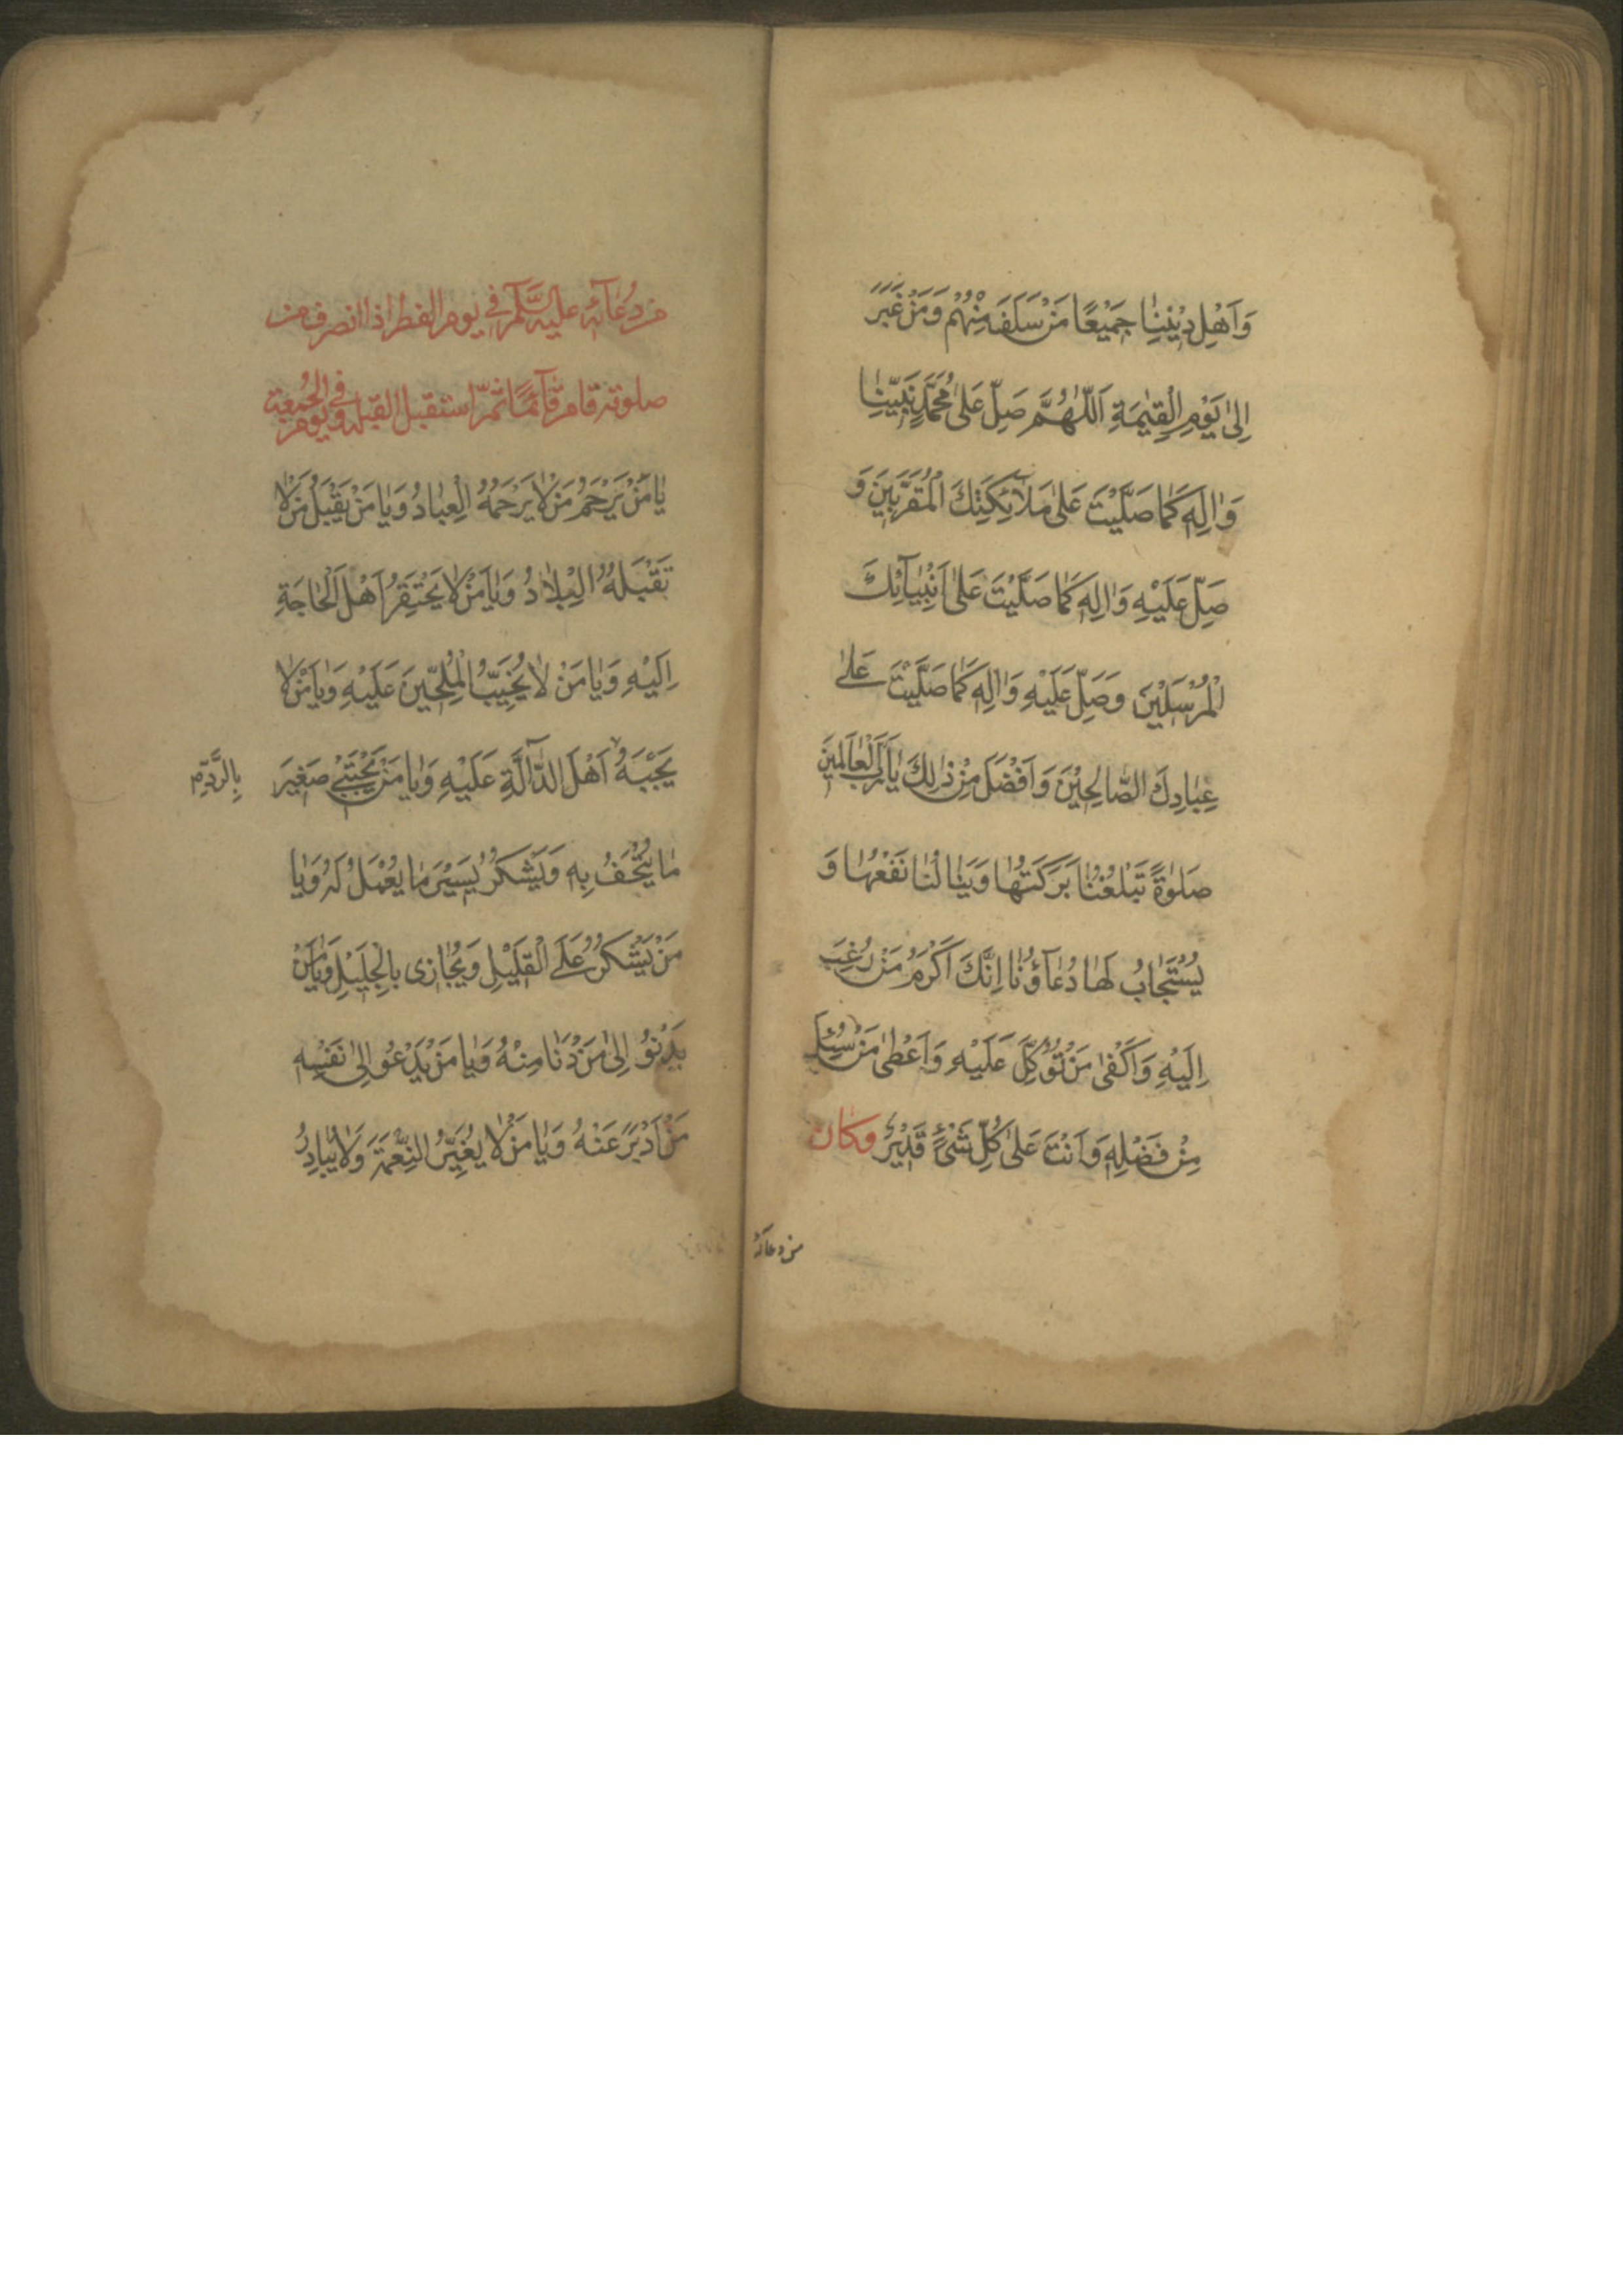 وَاَهْلِ دِيْنِنٰا جَمِيْعًا مَنْ سَلَفَ مِنْهُمْ وَمَنْ غَبَرَ
اِلىٰ يَوْمِ الْقِيٰمَةِ اَللّٰهُمَّ صَلِّ عَلىٰ مُحَمَّدٍ نَبِيِّنٰا
وَاٰلِهِ كَمٰا صَلَّيْتَ عَلىٰ مَلآئِكَتِكَ الْمُقَرَّبِيْنَ وَ
صَلِّ عَلَيْهِ وَاٰلِهِ كَمٰا صَلَّيْتَ عَلىٰ اَنْبِيٰآئِكَ
الْمُرْسَلِيْنَ وَصَلِّ عَلَيْهِ وَاٰلِهِ كَمٰا صَلَّيْتَ عَلىٰ
عِبٰادِكَ الصّٰالِحِيْنَ وَاَفْضَلَ مِنْ ذٰلِكَ يٰا رَبَّ الْعٰالَمِيْنَ
صَلوٰةً تَبْلُغُنٰا بَرَكَتُهٰا وَيَنٰالُنٰا نَفْعُهٰا وَ
يُسْتَجٰابُ لَهٰا دُعٰآؤُنٰا اِنَّكَ اَكْرَمُ مَنْ رُغِبَ
اِلَيْهِ وَاَكْفىٰ مَنْ تُوُكِّلَ عَلَيْهِ وَاَعْطىٰ مَنْ سُئِلَ
مِنْ فَضْلِهِ وَاَنْتَ عَلىٰ كُلِّ شَىْءٍ قَدِيْرٌ وكان
من دعائه
من دُعآئه عليه السَّلم فى يوم الفطر اذا انصرف من
صلوته قام قآئمًا ثمّ استقبل القبلة وفى يوم الجُمعة
يٰا مَنْ يَرْحَمُ مَنْ لٰا يَرْحَمُهُ الْعِبٰادُ وَيٰا مَنْ يَقْبَلُ مَنْ لٰا
تَقْبَلُهُ الْبِلٰادُ وَيٰا مَنْ لٰا يَحْتَقِرُ اَهْلَ الْحٰاجَةِ
اِلَيْهِ وَيٰا مَنْ لٰا يُخَيِّبُ الْمُلِحّيْنَ عَلَيْهِ وَيٰا مَنْ لٰا
يَجْبَهُ اَهْلَ الدّٰآلَّةِ عَلَيْهِ وَيٰا مَنْ يَجْتَبِىْ صَغِيْرَ
بِالرَّدِّ
مٰا يُتْحَفُ بِهِ وَيَشْكُرُ يَسِيْرَ مٰا يُعْمَلُ لَهُ وَيٰا
مَنْ يَشْكُرُ عَلَى الْقَلِيْلِ وَيُجٰازى بِالْجَلِيْلِ وَيٰا مَنْ
يَدْنُوْ اِلىٰ مَنْ دَنٰا مِنْهُ وَيٰا مَنْ يَدْعُو اِلىٰ نَفْسِهِ
مَنْ اَدْبَرَ عَنْهُ وَيٰا مَنْ لٰا يُغَيِّرُ النِّعْمَةَ وَلٰا يُبٰادِرُ